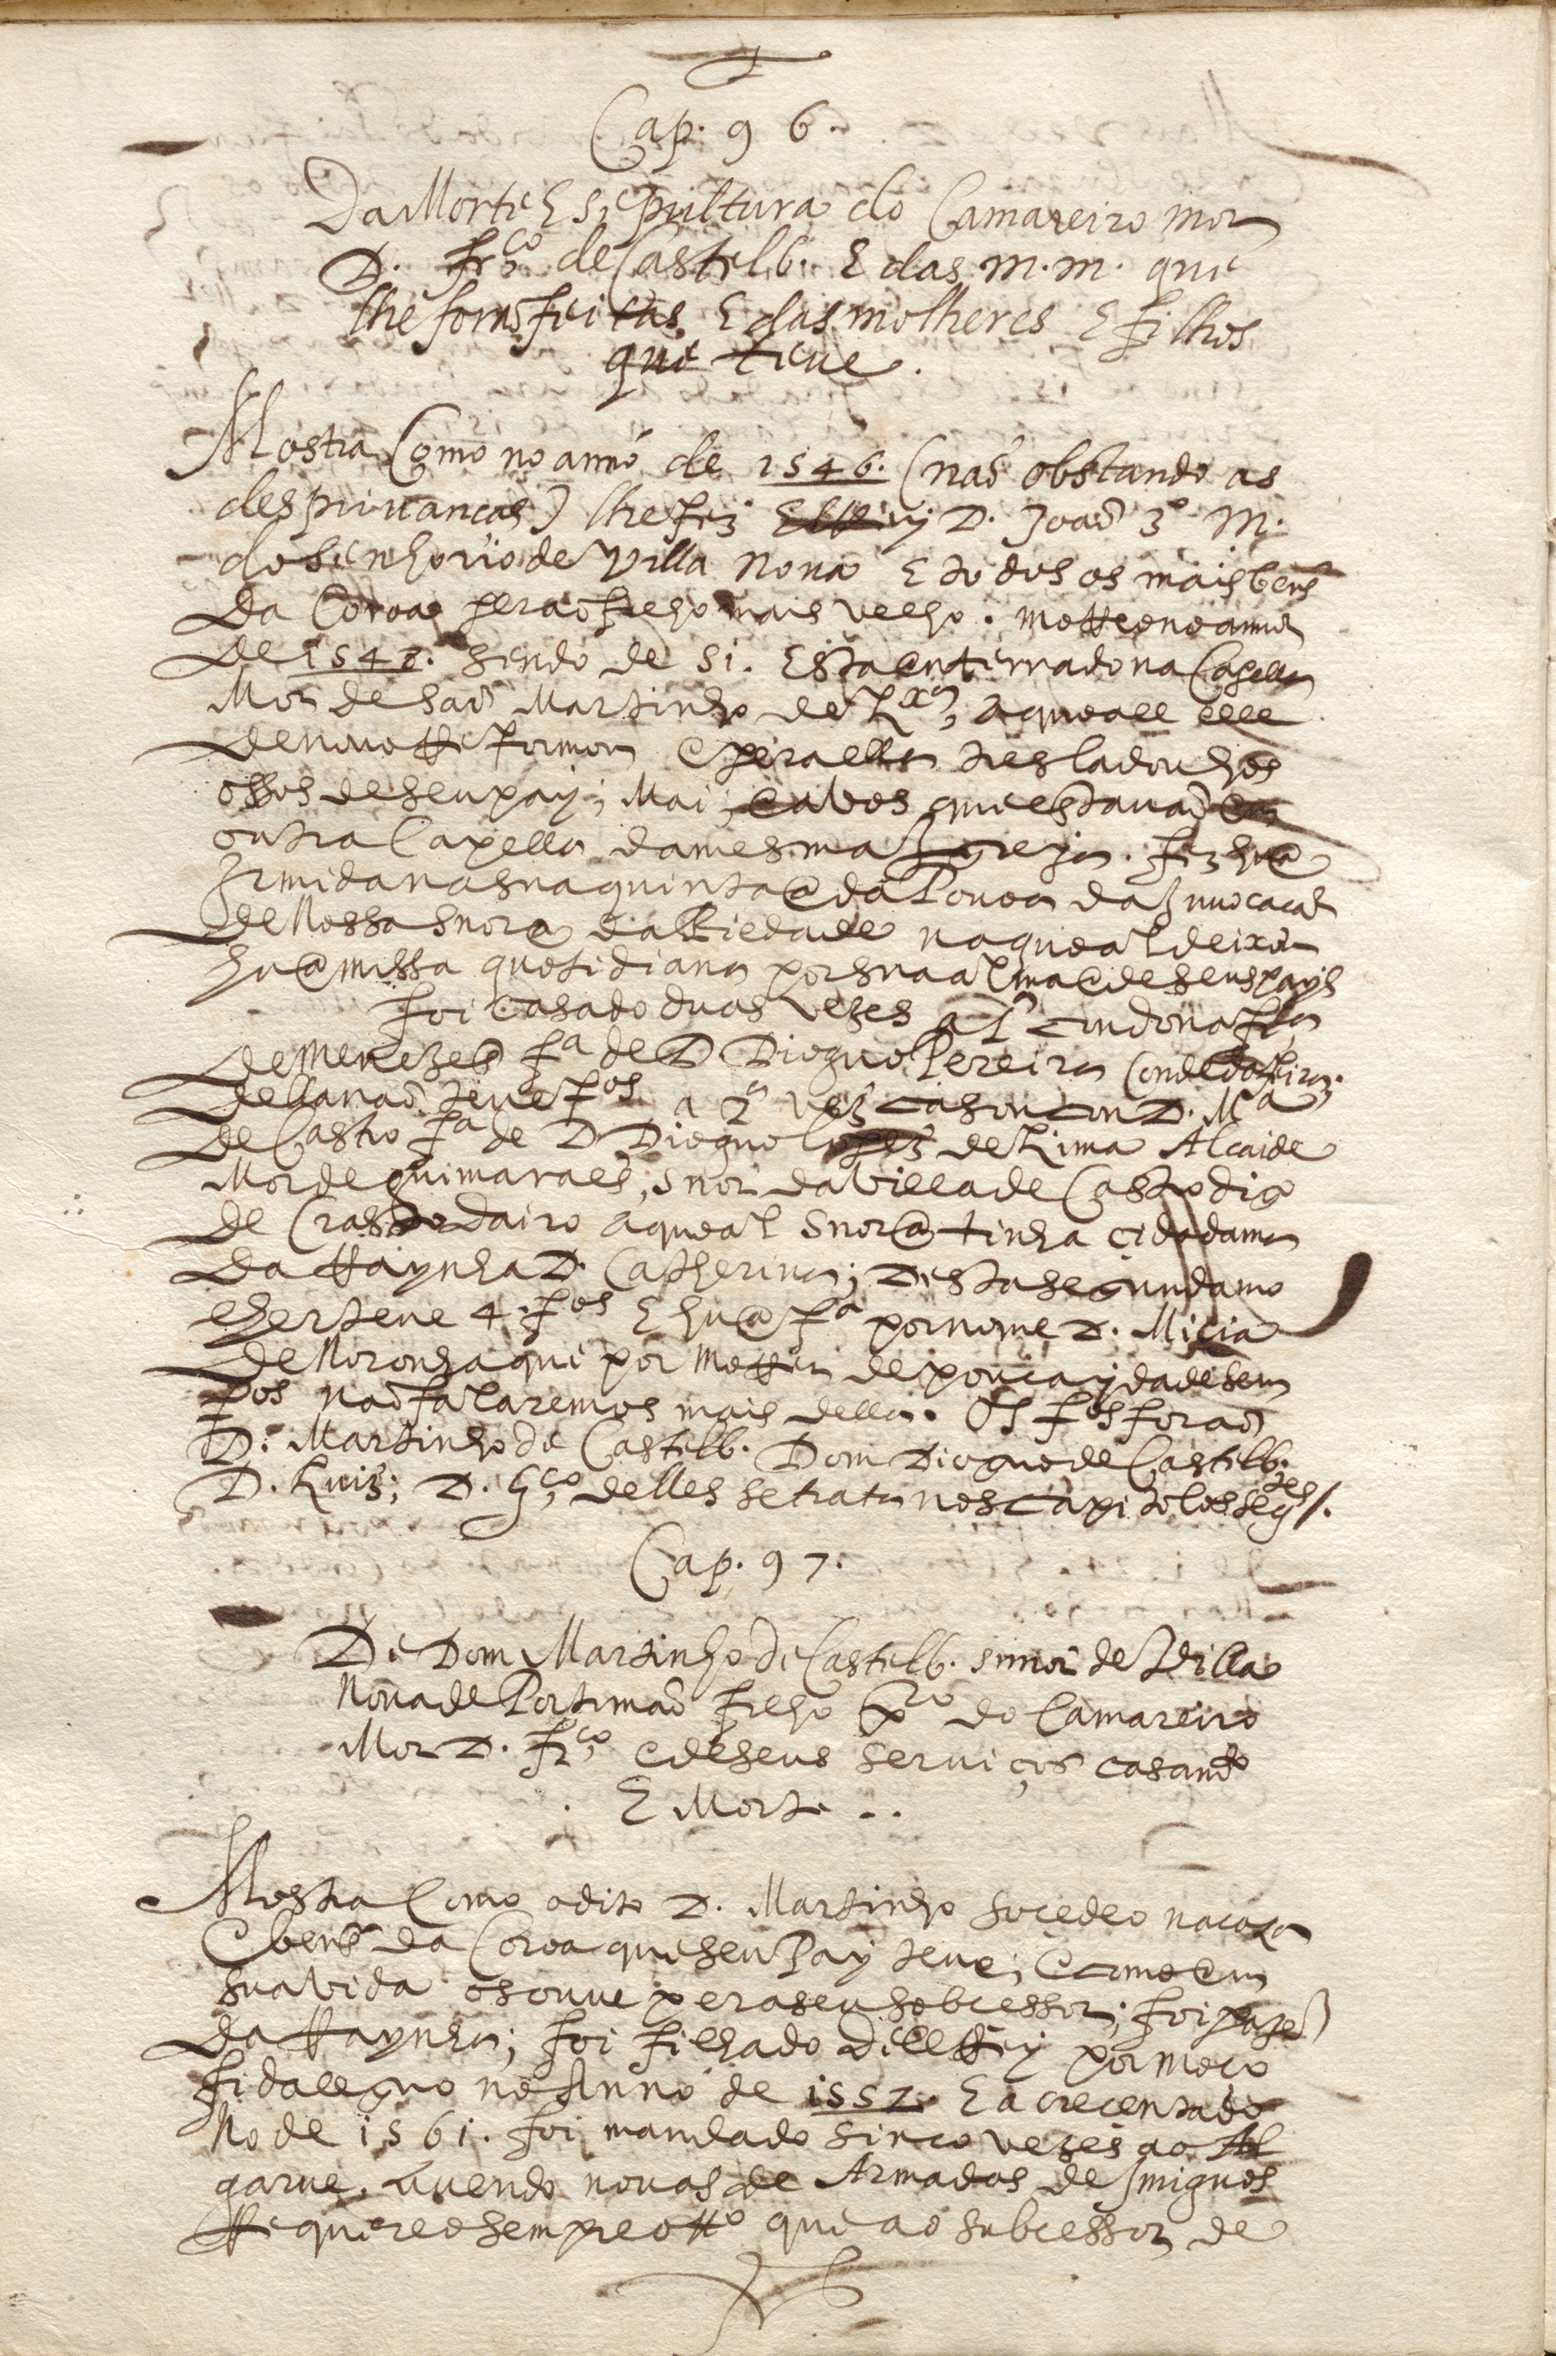 Cap. 96.
Da Morte E Sepultura do Camareiro mor
D. fr.co de Castelb. E das m.m. que
lhe forão feitas, E das molheres E filhos
que teve.
Mostra Como no anno de 1546. (não obstando as
desprivancas) lhe fez ElRey D. João 3º M.
do senhorio de Villa Nova E todos os mais bens
da Coroa pera o filho mais velho. morreo no anno
de sendo de 51. Esta enterrado na Capella
Mor de são Martinho de Lxa, a quoal elle
de novo reformou e pera ella tresladou hos
ossos de seu pay, Mai, e avos que estavão em
outra Capella da mesma Igreja. fez hũa
Irmida na sua quinta da Povoa da Invocacão
de Nossa Snora da Piedade na quoal deixou
hũa missa quotidiana por sua alma e de seus pays
foi casado duas vezes a 1ª con dona
de menezes fa de D Dioguo Pereira Conde da feira.
della não teve fos a 2ª vez casou con D. Ma
de Castro fa de D Dioguo lopes de Lima Alcaide
Mor de guimaraes, snor da villa de Castro digo
de Crasto dairo a quoal snora tinha cido dama
da Raynha D. Catherina; Desta segunda mo
lher teve 4. fos E hũa fa por nome D. Micia
de Noronha que por morrer de pouca ydade sem
fos não falaremos mais della. Os fos forão
D. Martinho de Castelb. Dom Dioguo de Castelb.
D. Luis; D. Gco, delles se trata nos capitolos segtes/.
Cap. 97.
De Dom Martinho de Castelb. snnor de Villa
Nova de Portimão filho pro do Camareiro
Mor D. frco e de seus serviços casamto
E Morte..
Mostra Como o dito D. Martinho socedeo na caza
E bens da Coroa que seu Pay teve; E como em
sua vida os ouve pera seu sobcessor; foi pagem
da Raynha; foi filhado delRey por moco
fidalguo no Anno de 1557. E acrecentado
No de 1561. foi mandado sinco vezes ao Al
garve. avendo novas de Armadas de Imiguos
Requereo sempre o que ao subcessor de